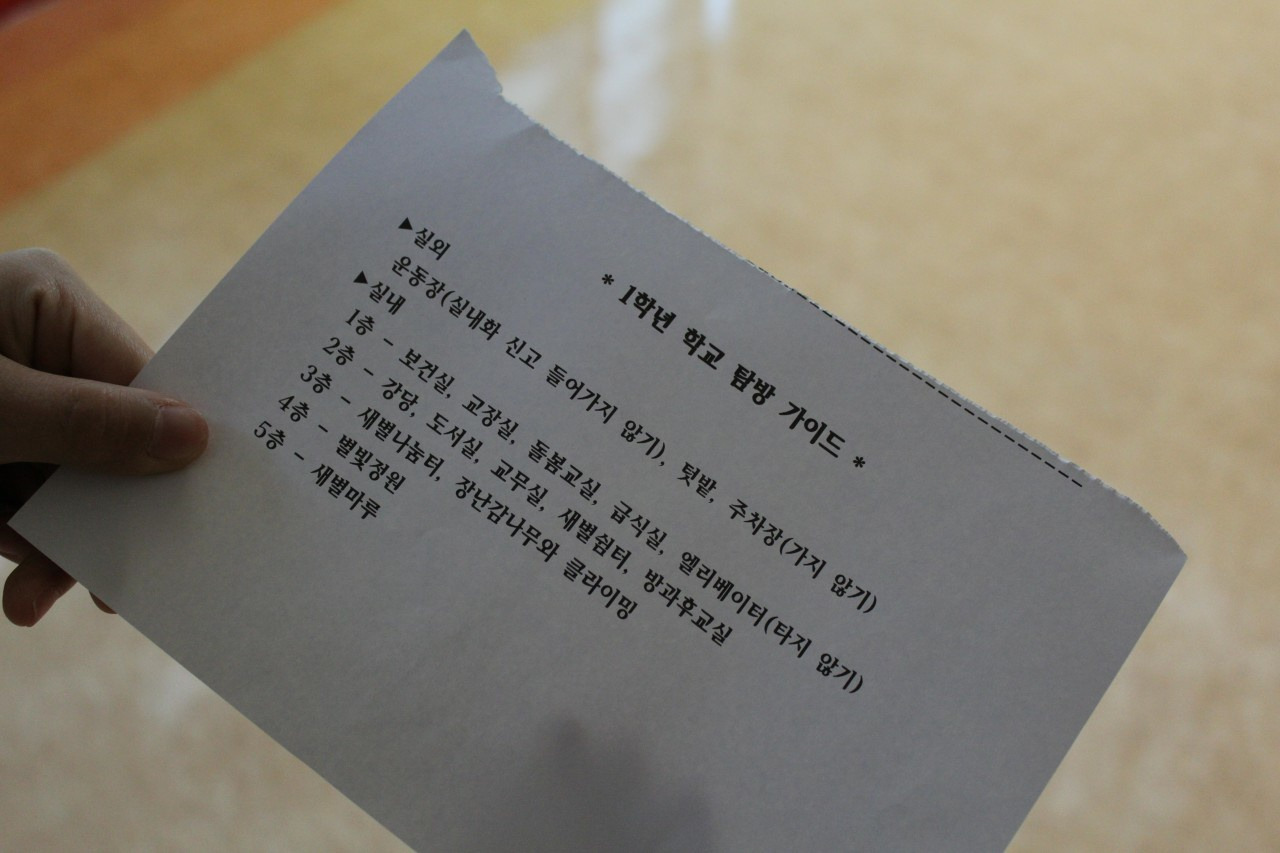 * 1학년 학교 탐방 가이드 *
▶실외
운동장(실내화 신고 들어가지 않기), 텃밭, 주차장(가지 않기)
▶실내
1층 - 보건실, 교장실, 돌봄교실, 급식실, 엘리베이터(타지 않기)
2층 - 강당, 도서실, 교무실, 새별쉼터, 방과후교실
3층 - 새별나눔터, 장난감나무와 클라이밍
4층 - 별빛정원
5층 - 새별마루